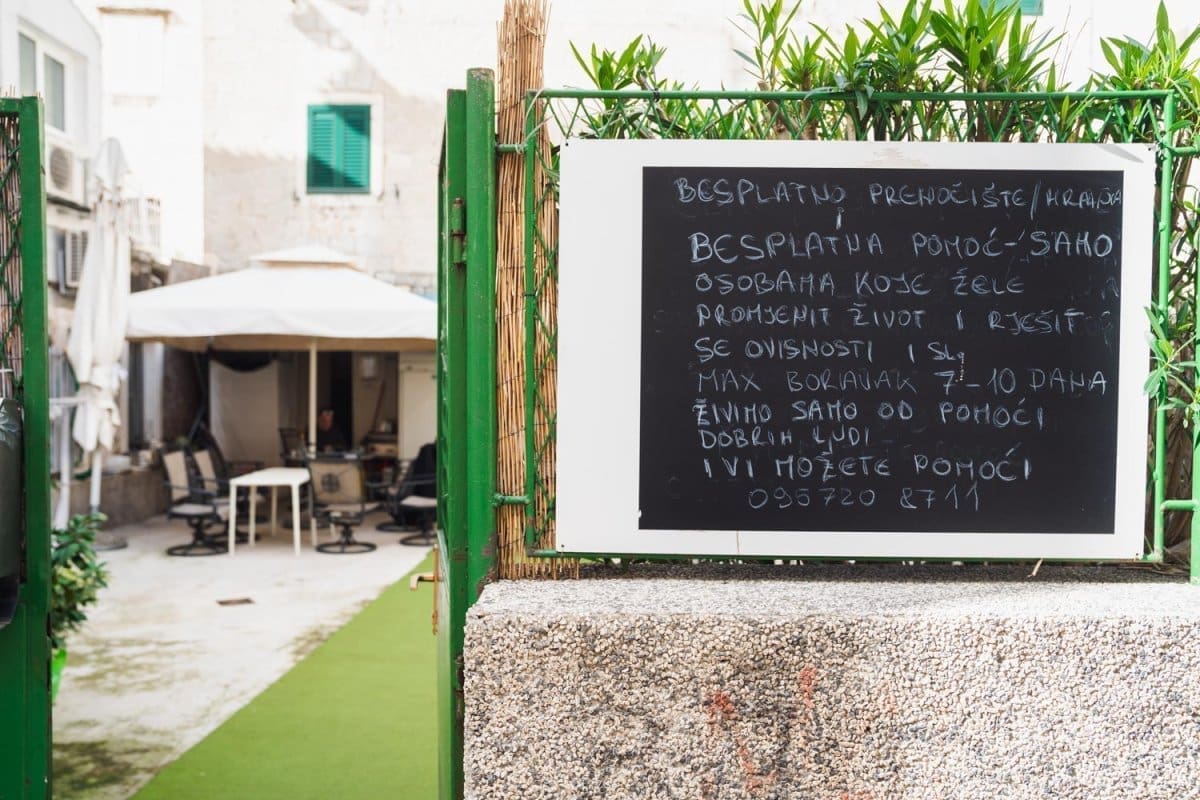 BESPLATNO PRENOĆIŠTE/HRANA
I
BESPLATNA POMOĆ-SAMO
OSOBAMA KOJE ŽELE
PROMJENIT ŽIVOT I RJEŠIT
SE OVISNOSTI I SL.
MAX BORAVAK 7-10 DANA
ŽIVIMO SAMO OD POMOĆI
DOBRIH LJUDI
I VI MOŽETE POMOĆI
095720 8711